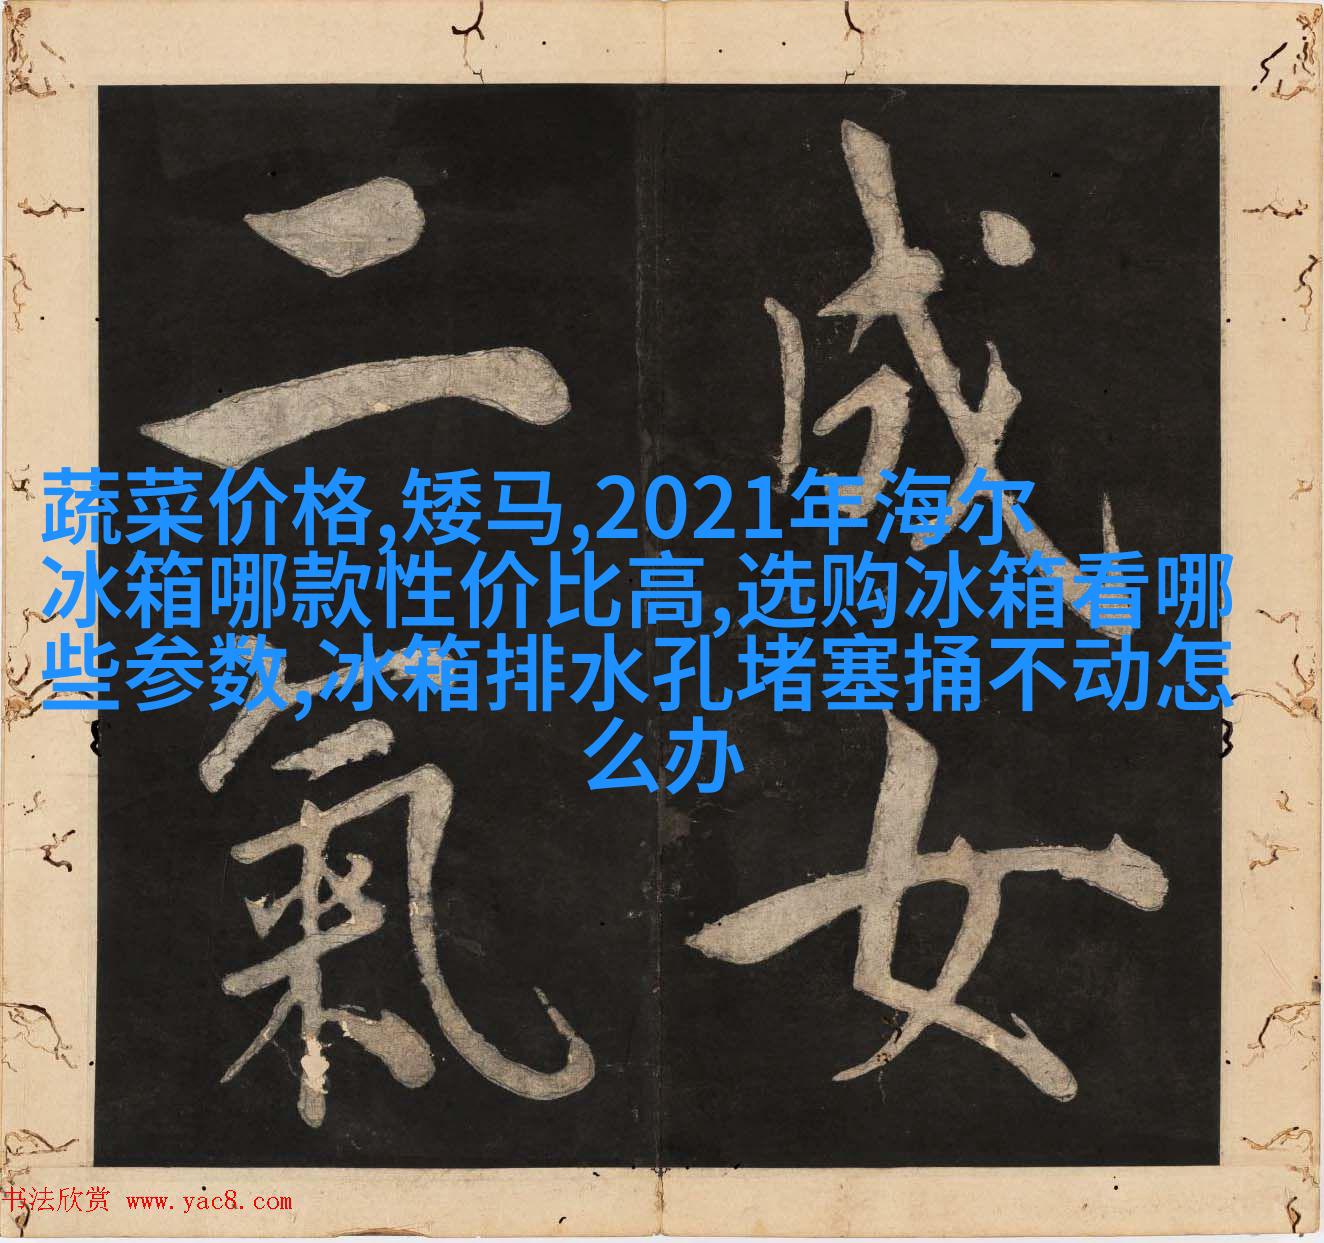 成女
二氣
蔬菜价格,矮马,2021年海尔
冰箱哪款性价比高,选购冰箱看哪
些参数,冰箱排水孔堵塞捅不动怎
么办
书法欣赏 www.yac8.com